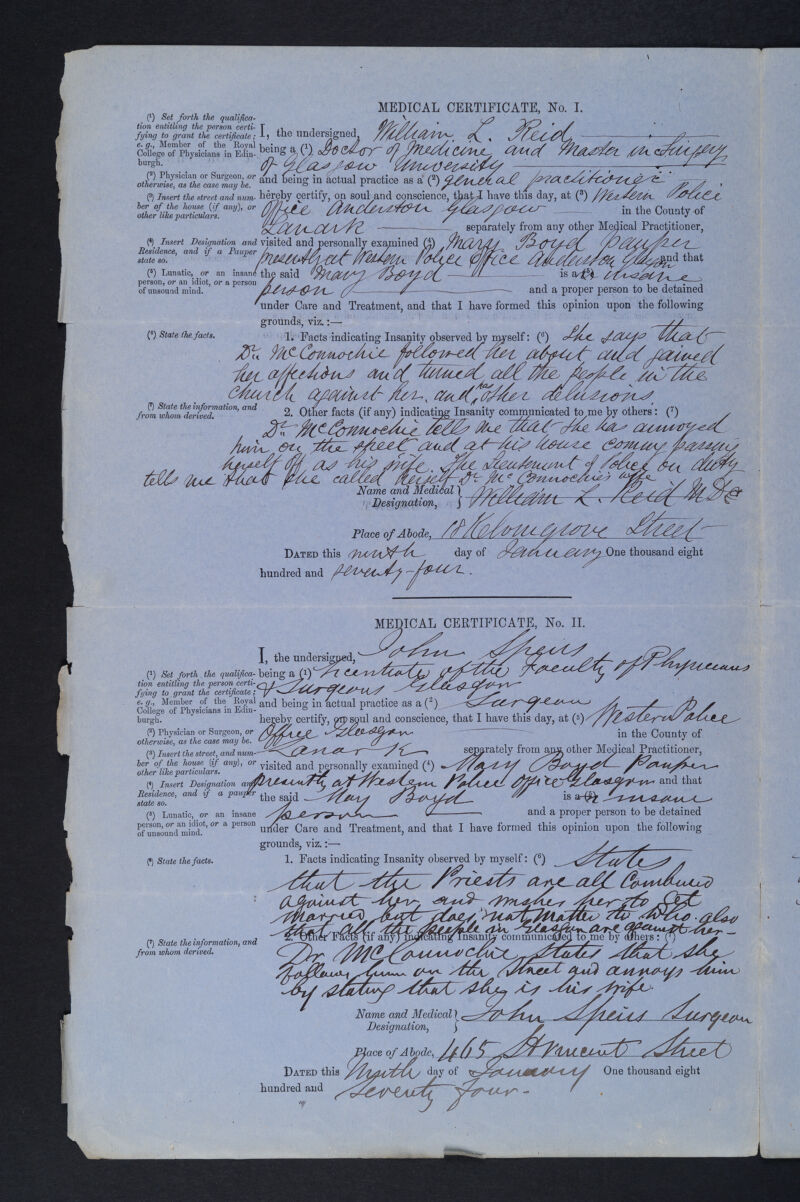 MEDICAL CERTIFICATE, No. I.
(1) Set forth the qualifica-
tion entitling the person certi-
fying to grant the certificate;
e. g., Member of the Royal
College of Physicians in Edin-
burgh.
(2) Physician or Surgeon, or
otherwise, as the case may be.
(3) Insert the street and num-
ber of the house (if any), or
other like particulars.
(4) Insert Designation and
Residence, and if a Pauper
state so.
(5) Lunatic, or an insane
person, or an idiot, or a person
of unsound mind.
(6) State the facts.
(7) State the information, and
from whom derived.
I, the undersigned, William L. Reid
being a (1) Doctor of Medicine and Master in Surgery
of Glasgow University
and being in actual practice as a (2) General practitioner
hereby certify, on soul and conscience, that I have this day, at (3) Western Police
Office Anderston Glasgow in the County of
Lanark separately from any other Medical Practitioner,
visited and personally examined (4) Mary Boyd pauper
presently at Western Police Office Anderston Glasgow and that
the said Mary Boyd is a (5) insane
person and a proper person to be detained
under Care and Treatment, and that I have formed this opinion upon the following
grounds, viz.:—
1. Facts indicating Insanity observed by myself: (6) She says that
Dr. McConnochie followed her about and gained
her affections and turned all the people in the
church against her. and has other delusions.
2. Other facts (if any) indicating Insanity communicated to me by others: (7)
Dr. McConnochie tells me that she has annoyed
him on the street and at his house coming passing
herself off as his wife. The Lieutenant of Police on duty
tells me that she called herself Dr McConnochie's wife
Name and Medical
Designation, William L. Reid M.D &
Place of Abode, Street
DATED this ninth day of January One thousand eight
hundred and seventy-four.
MEDICAL CERTIFICATE, No. II.
(1) Set forth the qualifica-
tion entitling the person certi-
fying to grant the certificate;
e. g., Member of the Royal
College of Physicians in Edin-
burgh.
(2) Physician or Surgeon, or
otherwise, as the case may be.
(3) Insert the street, and num-
ber of the house (if any), or
other like particulars.
(4) Insert Designation and
Residence, and if a pauper
state so.
(5) Lunatic, or an insane
person, or an idiot, or a person
of unsound mind.
(6) State the facts.
(7) State the information, and
from whom derived.
I, the undersigned, John Speirs
being a (1) Licentiate of the Faculty of Physicians
& Surgeons Glasgow
and being in actual practice as a (2) Surgeon
hereby certify, on soul and conscience, that I have this day, at (3) Western Police
Office Glasgow in the County of
Lanark separately from any other Medical Practitioner,
visited and personally examined (4) Mary Boyd Pauper
presently at Western Police Office Glasgow and that
the said Mary Boyd is a (5) insane
person and a proper person to be detained
under Care and Treatment, and that I have formed this opinion upon the following
grounds, viz.:—
1. Facts indicating Insanity observed by myself: (6) States
that the Priests are all Combined
against her and wishes her to get
married but does not matter to who. also
that all the people in Glasgow are against her-
2. Other Facts (if any) indicating Insanity communicated to me by others: (7)
Dr McConnochie states that she
follows him on the street and annoys him
by stating that she is his wife.
Name and Medical
Designation, John Speirs Surgeon
Place of Abode, 465 St Vincent Street
DATED this Ninth day of January One thousand eight
hundred and Seventy four.